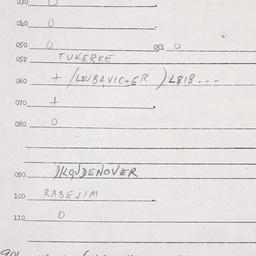 030 0
040 0
050 0 051 0
052 TUKERKE
060 + (LJUBAVIC+ER) L818...
070 +
080 0
090
100 RABEJIM
110 0